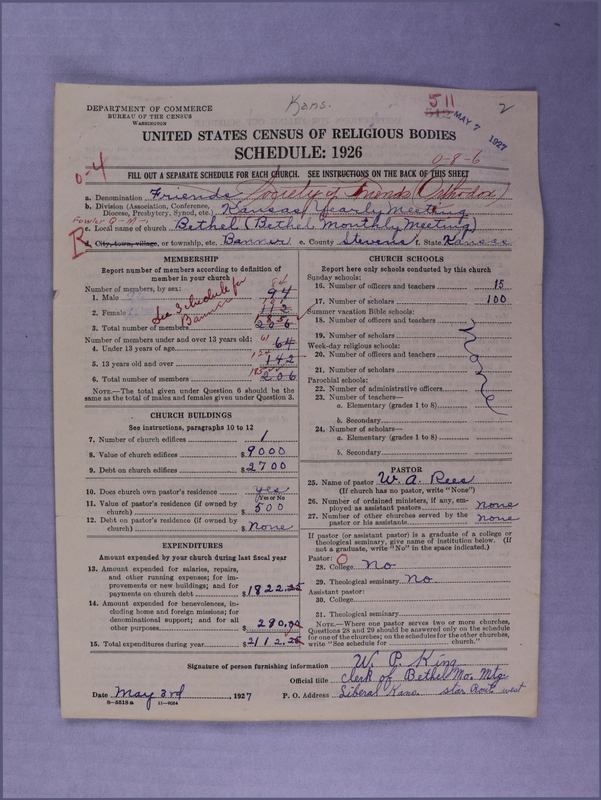 Kans.
511
MAY 7 1927
2
DEPARTMENT OF COMMERCE
BUREAU OF THE CENSUS
WASHINGTON
UNITED STATES CENSUS OF RELIGIOUS BODIES
SCHEDULE: 1926
0-4
0-8-6
FILL OUT A SEPARATE SCHEDULE FOR EACH CHURCH. SEE INSTRUCTIONS ON THE BACK OF THIS SHEET
a. Denomination Friends Society of Friends (Orthodox)
b. Division (Association, Conference, Diocese, Presbytery, Synod, etc.) Kansas Yearly Meeting
Fowler Q-M-
c. Local name of church Bethel (Bethel Monthly Meeting)
R
d. City, town, village, or township, etc. Banner e. County Stevens f. State Kansas
MEMBERSHIP
Report number of members according to definition of
member in your church
Number of members, by sex:
1. Male 94
84
2. Female 112
See Schedule for
Banner
3. Total number of members 206
185
Number of members under and over 13 years old:
4. Under 13 years of age 64
61
5. 13 years old and over 142
124
6. Total number of members 206
185
NOTE.—The total given under Question 6 should be the
same as the total of males and females given under Question 3.
CHURCH BUILDINGS
See instructions, paragraphs 10 to 12
7. Number of church edifices 1
8. Value of church edifices $9000
9. Debt on church edifices $2700
10. Does church own pastor's residence yes
(Yes or No)
11. Value of pastor's residence (if owned by
church) $500
12. Debt on pastor's residence (if owned by
church) $none
EXPENDITURES
Amount expended by your church during last fiscal year
13. Amount expended for salaries, repairs,
and other running expenses; for im-
provements or new buildings; and for
payments on church debt $1822.25
14. Amount expended for benevolences, in-
cluding home and foreign missions; for
denominational support; and for all
other purposes $290.00
15. Total expenditures during year $2112.25
CHURCH SCHOOLS
Report here only schools conducted by this church
Sunday schools:
16. Number of officers and teachers 15
17. Number of scholars 100
Summer vacation Bible schools:
18. Number of officers and teachers
19. Number of scholars
Week-day religious schools:
20. Number of officers and teachers
21. Number of scholars
Parochial schools:
22. Number of administrative officers
23. Number of teachers—
a. Elementary (grades 1 to 8)
b. Secondary
24. Number of scholars—
a. Elementary (grades 1 to 8)
b. Secondary
None
PASTOR
25. Name of pastor W. A. Rees
(If church has no pastor, write "None")
26. Number of ordained ministers, if any, em-
ployed as assistant pastors none
27. Number of other churches served by the
pastor or his assistants none
If pastor (or assistant pastor) is a graduate of a college or
theological seminary, give name of institution below. (If
not a graduate, write "No" in the space indicated.)
Pastor: O
28. College no
29. Theological seminary no
Assistant pastor:
30. College
31. Theological seminary
NOTE.—Where one pastor serves two or more churches,
Questions 28 and 29 should be answered only on the schedule
for one of the churches; on the schedules for the other churches,
write "See schedule for church."
Signature of person furnishing information W. P. King
Official title clerk of Bethel Mo. Mtg.
Date May 3rd, 1927 P. O. Address Liberal Kans. star Rout west
8-5518 a 11-9064